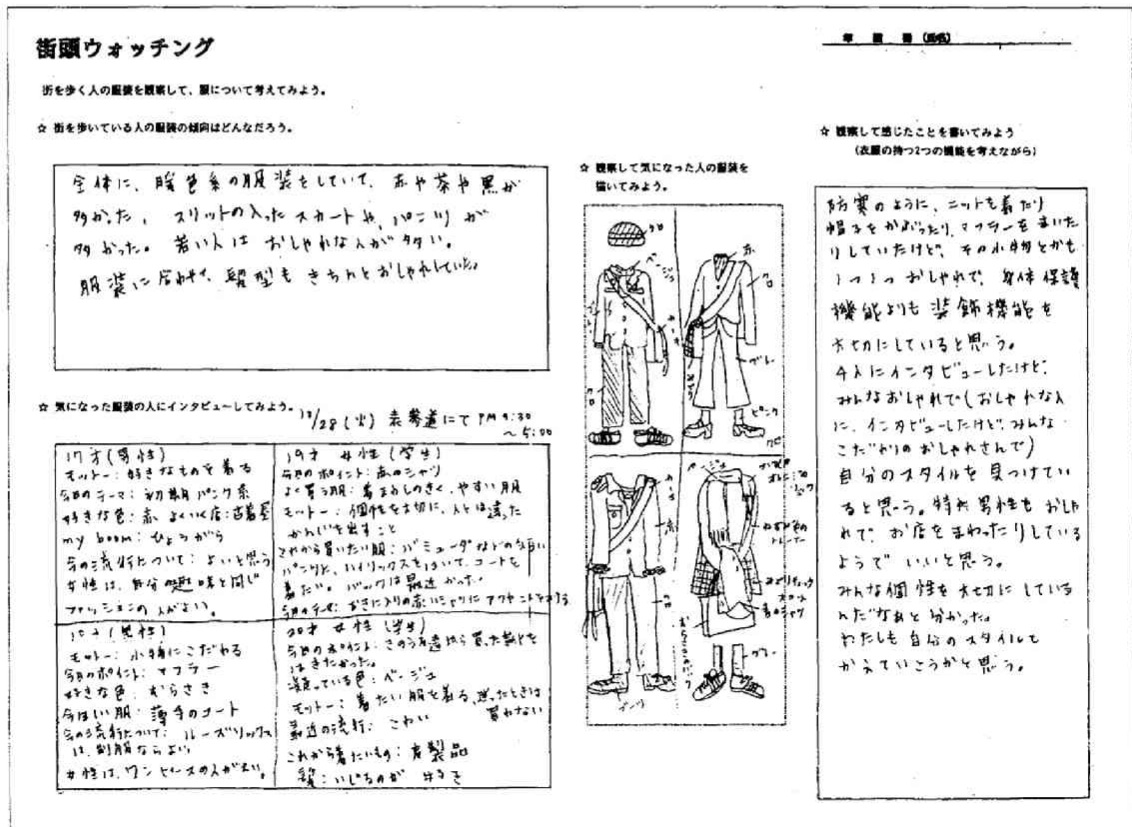 街頭ウォッチング
年 組 番 (氏名)
街を歩く人の服装を観察して、服について考えてみよう。
☆ 街を歩いている人の服装の傾向はどんなだろう。
全体に、暖色系の服装をしていて、赤や茶や黒が
多かった。スリットの入ったスカートや、パンツが
多かった。若い人はおしゃれな人が多い。
服装に合わせて、髪型もきちんとおしゃれしていた。
☆ 気になった服装の人にインタビューしてみよう。
10/28 (火) 表参道にて PM
~ 5:00
17才(男性)
モットー:好きなものを着る
今日のテーマ:初期パンク系
好きな色:赤 よくいく店:古着屋
my boom:ひょうがら
今の流行について:よいと思う
女性は、自分の趣味と同じ
ファッションの人がよい。
19才 女性(学生)
今日のポイント:赤のシャツ
よく買う服:着まわしのきく、やすい服
モットー:個性を大切に、人とは違った
かんじを出すこと
これから買いたい服:バミューダなどの
パンツに、ハイソックスをはいて、コートを
着たい。バックは最近かった。
今日のテーマ:お気に入りの赤いシャツにアクセントを
(男性)
モットー:小物にこだわる
今日のポイント:マフラー
好きな色:むらさき
今ほしい服:薄手のコート
今の流行について:ルーズソックス
は、制服ならよい
女性は、ワンピースの人がよい。
20才 女性(学生)
今日のポイント:きのう
はきたかった。
凝っている色:ベージュ
モットー:着たい服を着る、迷ったときは
買わない
最近の流行:こわい
これから着たいもの:皮製品
髪:いじるのが 好き
☆ 観察して気になった人の服装を
描いてみよう。
クロ
ベージュ
クロ
赤
クロ
グレー
ピンク
クロ
ベージュ
トレーナー
グレー
☆ 観察して感じたことを書いてみよう
(衣服の持つ2つの機能を考えながら)
防寒のように、ニットを着たり
帽子をかぶったり、マフラーをまいた
りしていたけど、その小物とかも
1つ1つおしゃれで、身体保護
機能よりも装飾機能を
大切にしていると思う。
4人にインタビューしたけど、
みんなおしゃれで(おしゃれな人
に、インタビューしたけど、みんな
こだわりのおしゃれさんで)
自分のスタイルを見つけてい
ると思う。特に男性もおしゃ
れで、お店をまわったりしている
ようでいいと思う。
みんな個性を大切にしている
んだなぁと分かった。
わたしも自分のスタイルを
かえていこうかと思う。